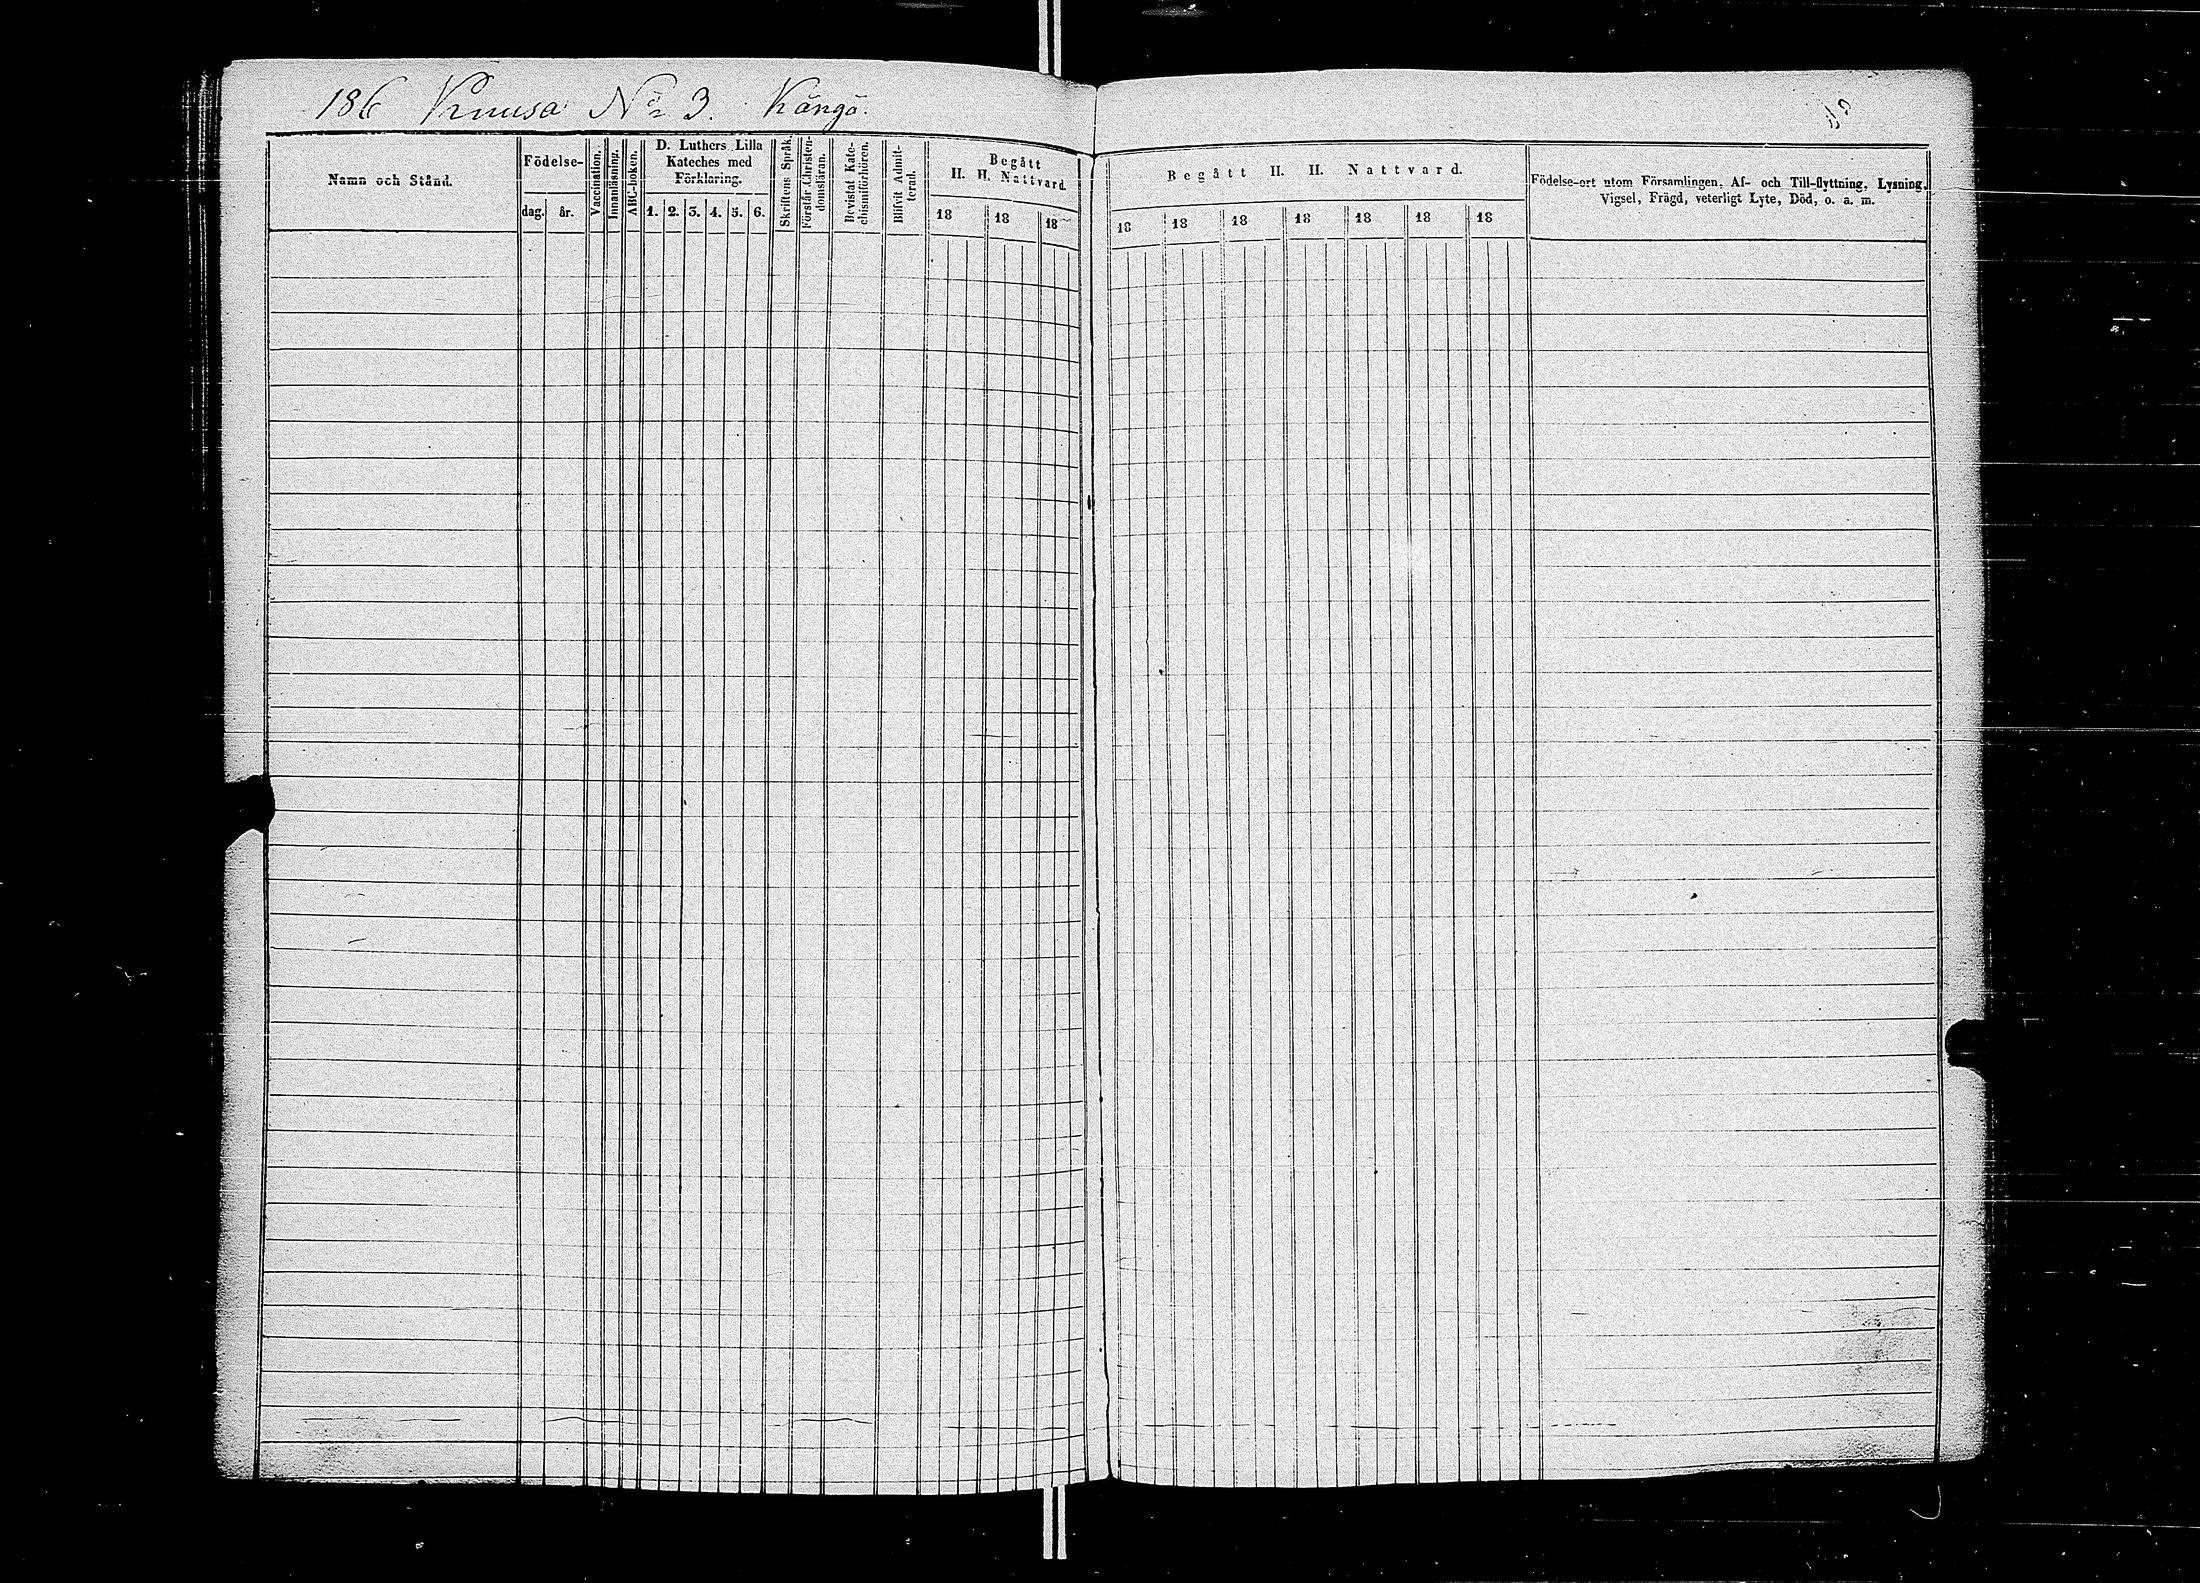 186 Knusa No 3. Kångö.
Namn och Stånd.
Födelse-
dag. år.
Vaccination.
Innanläsning.
ABC-boken.
D. Luthers Lilla
Kateches med
Förklaring.
1. 2. 3. 4. 5. 6.
Skriftens Språk.
Förstår Christen-
domsläran.
Bevistat Kate-
chismiförhören.
Blifvit Admit-
terad.
Begått
H. H. Nattvard.
18 18 18
Begått H. H. Nattvard.
18 18 18 18 18 18 18
Födelse-ort utom Församlingen, Af- och Till-flyttning, Lysning,
Vigsel, Frägd, veterligt Lyte, Död, o. a. m.